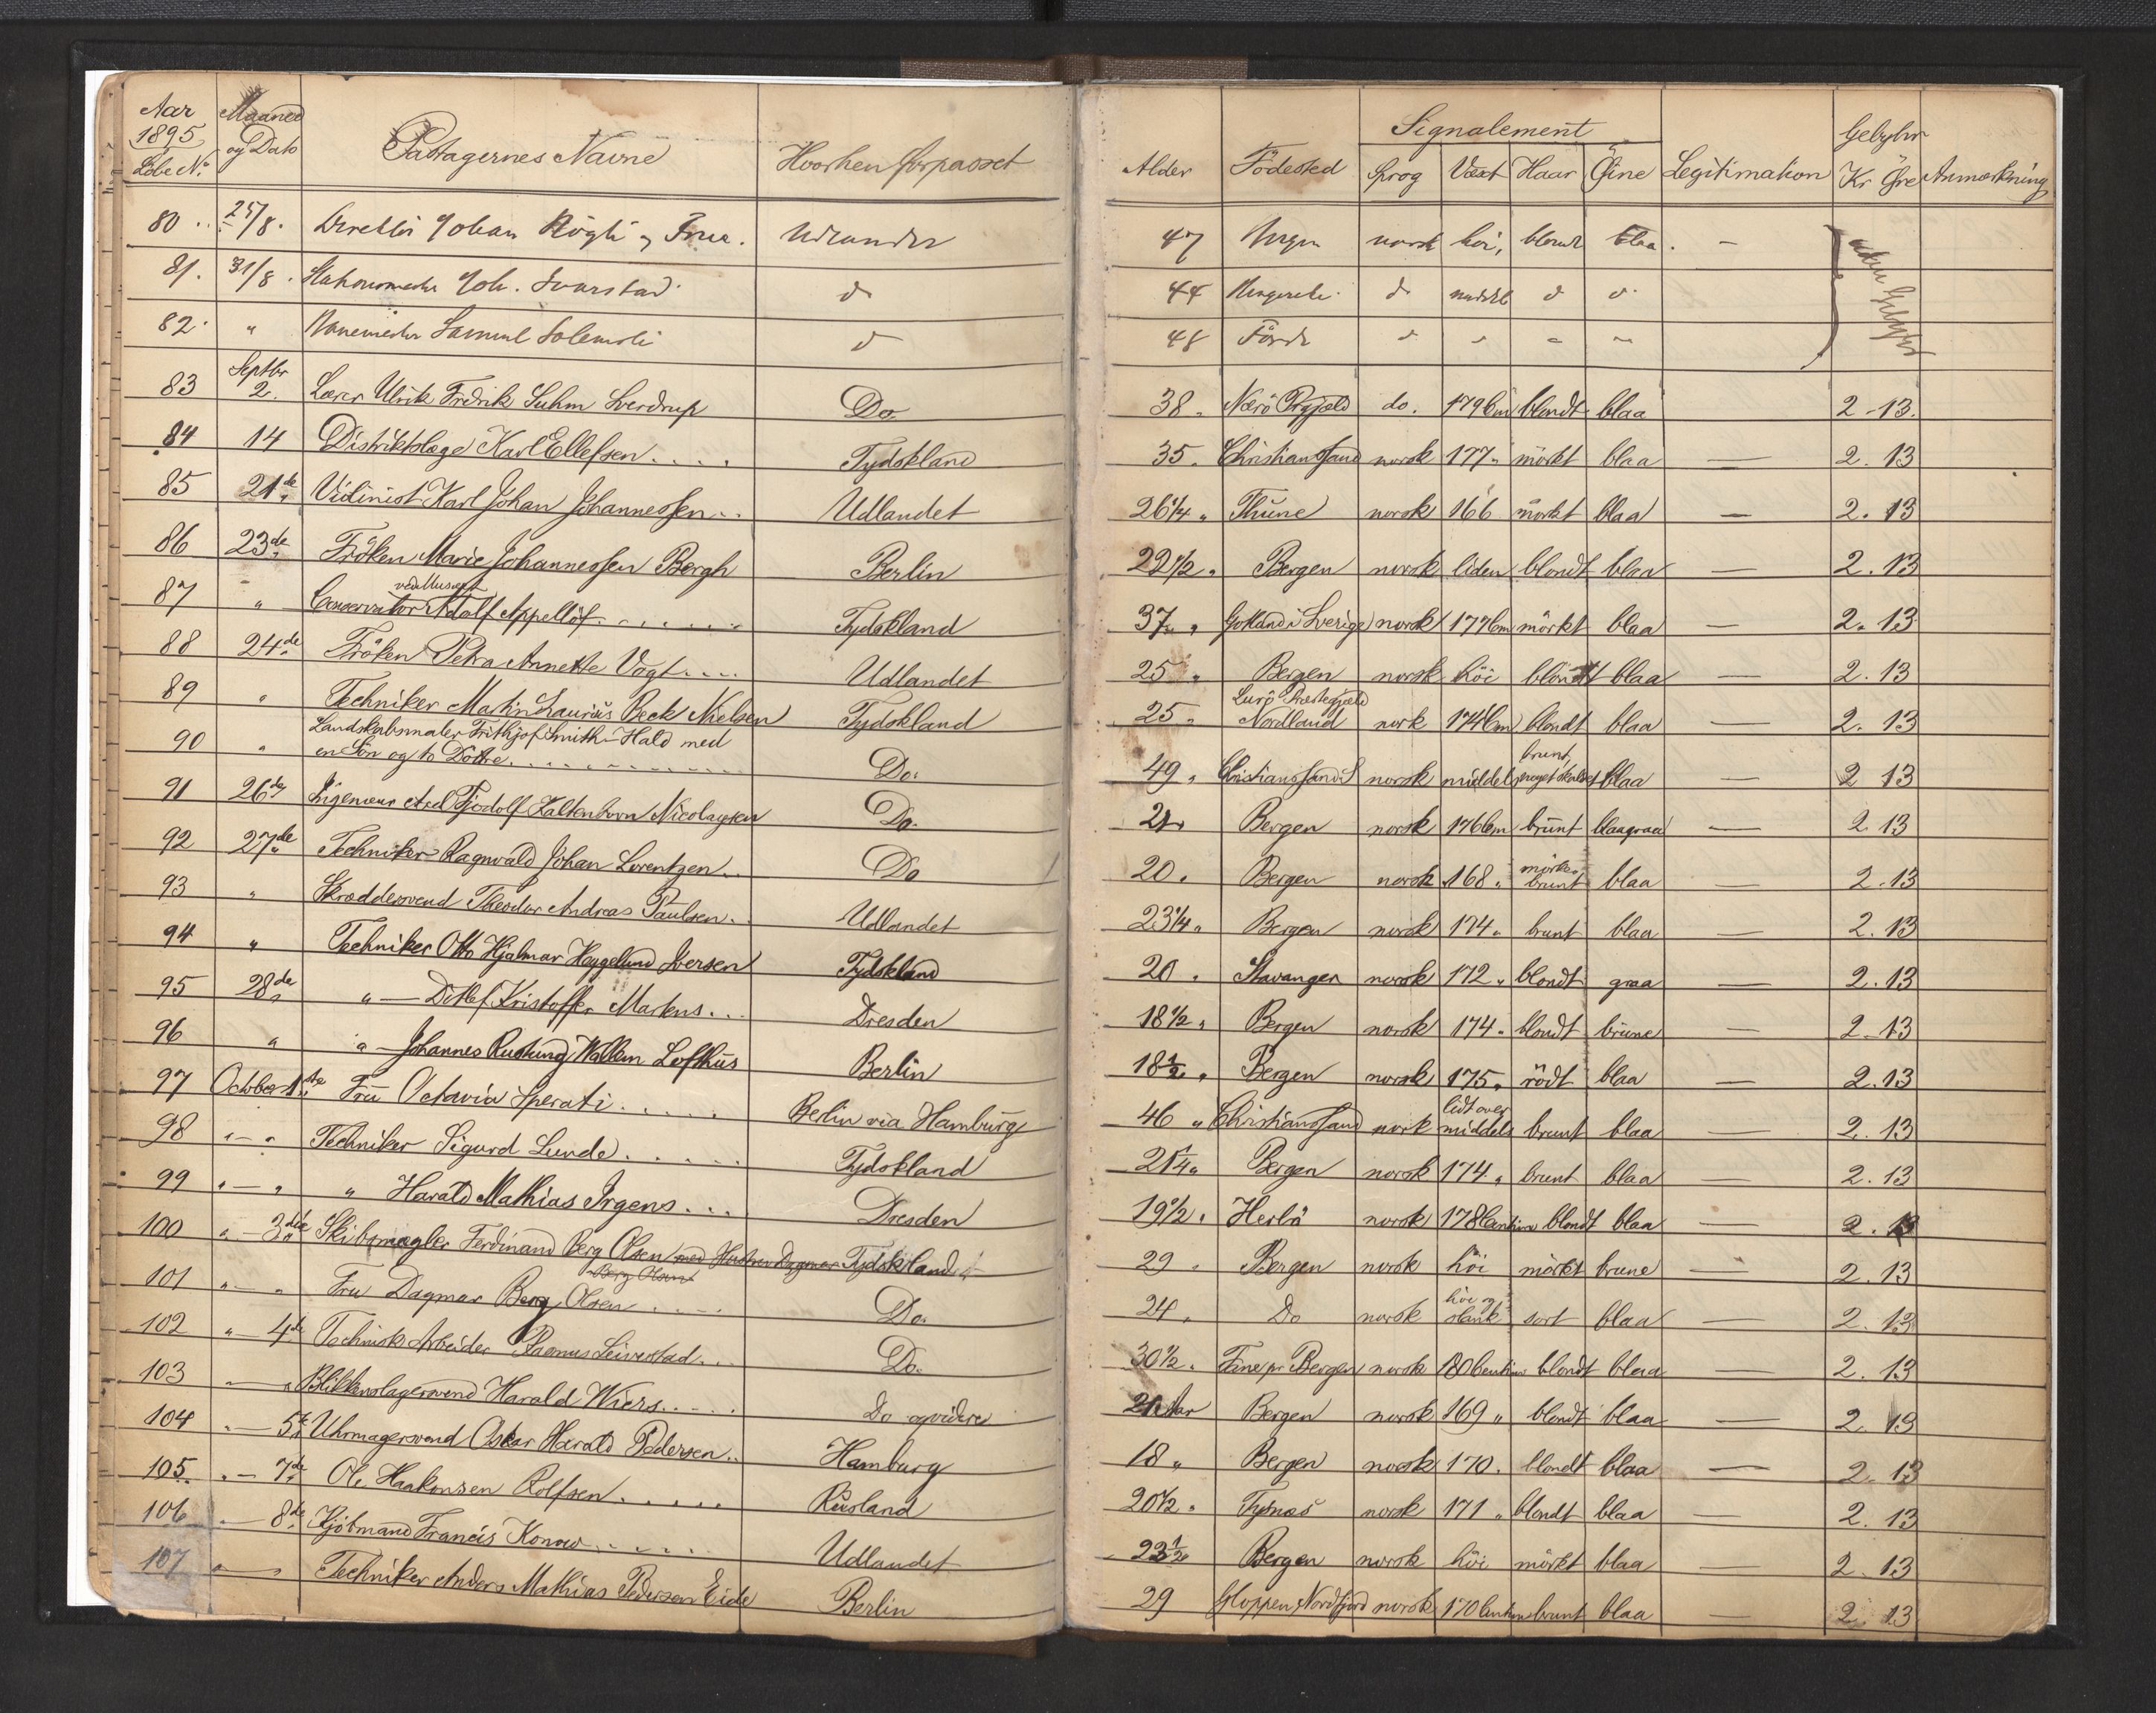 Aar 1895 Löbe No. Maaned og Dato Passagernes Navne Hvorhen forpasset Alder Födested Signalement Sprog Væxt Haar Öine Legitimation Gebyhr Kr Öre Anmærkning
80 25/8 Direktör Johan og Frue. Udlandet 47 Bergen norsk höi, blondt blaa. —
81. 31/8. Stationsmester Joh. do 44 do middel do do
82. " Banemester Samuel do 48 Förde " " " " uden Gebyhr
83 Septbr 2. Lærer Ulrik Fredrik Suhm Sverdrup Do 38. Nærö Prgjæld do. 179 Cm blondt blaa 2-13.
84 14 Distriktslæge Karl Ellefsen.... Tydskland 35. Christianssand norsk 177" mörkt blaa — 2.13
85 21de Violinist Karl Johan Johannessen... Udlandet 26 1/4 " Thüne norsk 166 mörkt blaa — 2.13
86 23de Fröken Marie Johannessen Bergh Berlin 22 1/2 " Bergen norsk liden blondt blaa — 2.13
87 " Conservator ved Museet Adolf Appellöf....... Tydskland 37 " Gotland i Sverige norsk 177 Cm mörkt blaa — 2.13
88 24de Fröken Petra Annette Vogt.... Udlandet 25 " Bergen norsk höi blondt blaa — 2.13
89 " Techniker Martin Laurits Beck Nielsen Tydskland 25 " Lurö Præstegjæld Nordland nork 174 Cm blondt blaa — 2.13
90 " Landskabsmaler Frithjof Smith-Hald med
en Sön og to Dötre............ Do. 49 " Christianssand S norsk middel brunt, meget skaldet blaa — 2 13
91 26de Ingeniör Axel Fjodolf Kaltenborn Nicolaysen Do. 21 Bergen norsk 176 Cm brunt blaagraa — 2 13
92 27de Techniker Ragnvald Johan Lorentzen... Do 20. Bergen norsk 168. mörke-brunt blaa — 2.13
93 " Skræddersvend Theodor Andreas Paulsen.. Udlandet 23 1/4 " Bergen norsk 174" brunt blaa — 2.13
94 " Techniker Otto Hjalmar Heggelund Iversen Tydskland 20. Stavanger norsk 172" blondt graa — 2.13
95 28de " — Detlef Kristoffer Martens... Dresden 18 1/2 " Bergen norsk 174" blondt brune — 2.13
96 " " — Johannes Rustung Wallem Lofthus Berlin 18 1/2 " Bergen norsk 175" rödt blaa — 2.13
97 October 1ste Frü Octavia Sperati..... Berlin via Hamburg 46 " Christianssand nork lidt over middels brunt blaa — 2.13
98 "-" Techniker Sigurd Lunde..... Tydskland 21 1/4 " Bergen norsk 174" brunt blaa — 2.13
99 "-" " Harald Mathias Irgens.... Dresden 19 1/2. Herlö norsk 178 Centim blondt blaa — 2.13
100 "-3die Skibsmægler Ferdinand Berg Olsen med Hustru Dagmar Berg Olsen Tydskland 29 " Bergen norsk höi mörkt brune — 2.13
101 "-" Fru Dagmar Berg Olsen..... Do. 24. Do norsk höi og slank sort blaa — 2.13
102 "-4de Teknisk Arbeider Rasmus Seiverstad... Do. 30 1/2. Fane pr Bergen norsk 180 Centim blondt blaa 2.13
103 "-" Blikkenslagersvend Harald Wiers..... Do og videre 21 Aar Bergen norsk 169" blondt blaa — 2.13
104 "-5te Uhrmagersvend Oskar Harald Pedersen.. Hamburg 18 " Bergen norsk 170. blondt blaa — 2.13
105 "-7de Ole Haakonsen Rolfsen..... Rusland 20 1/2 " Tysnæs norsk 171" blondt blaa — 2.13
106 "-8de Kjöbmand Francis Konow..... Udlandet 23 1/2 Bergen norsk höi mörkt blaa — 2.13
107 "-" Techniker Anders Mathias Pedersen Eide Berlin 29 Gloppen, Nordfjord norsk 170 Centim brunt blaa — 2.13